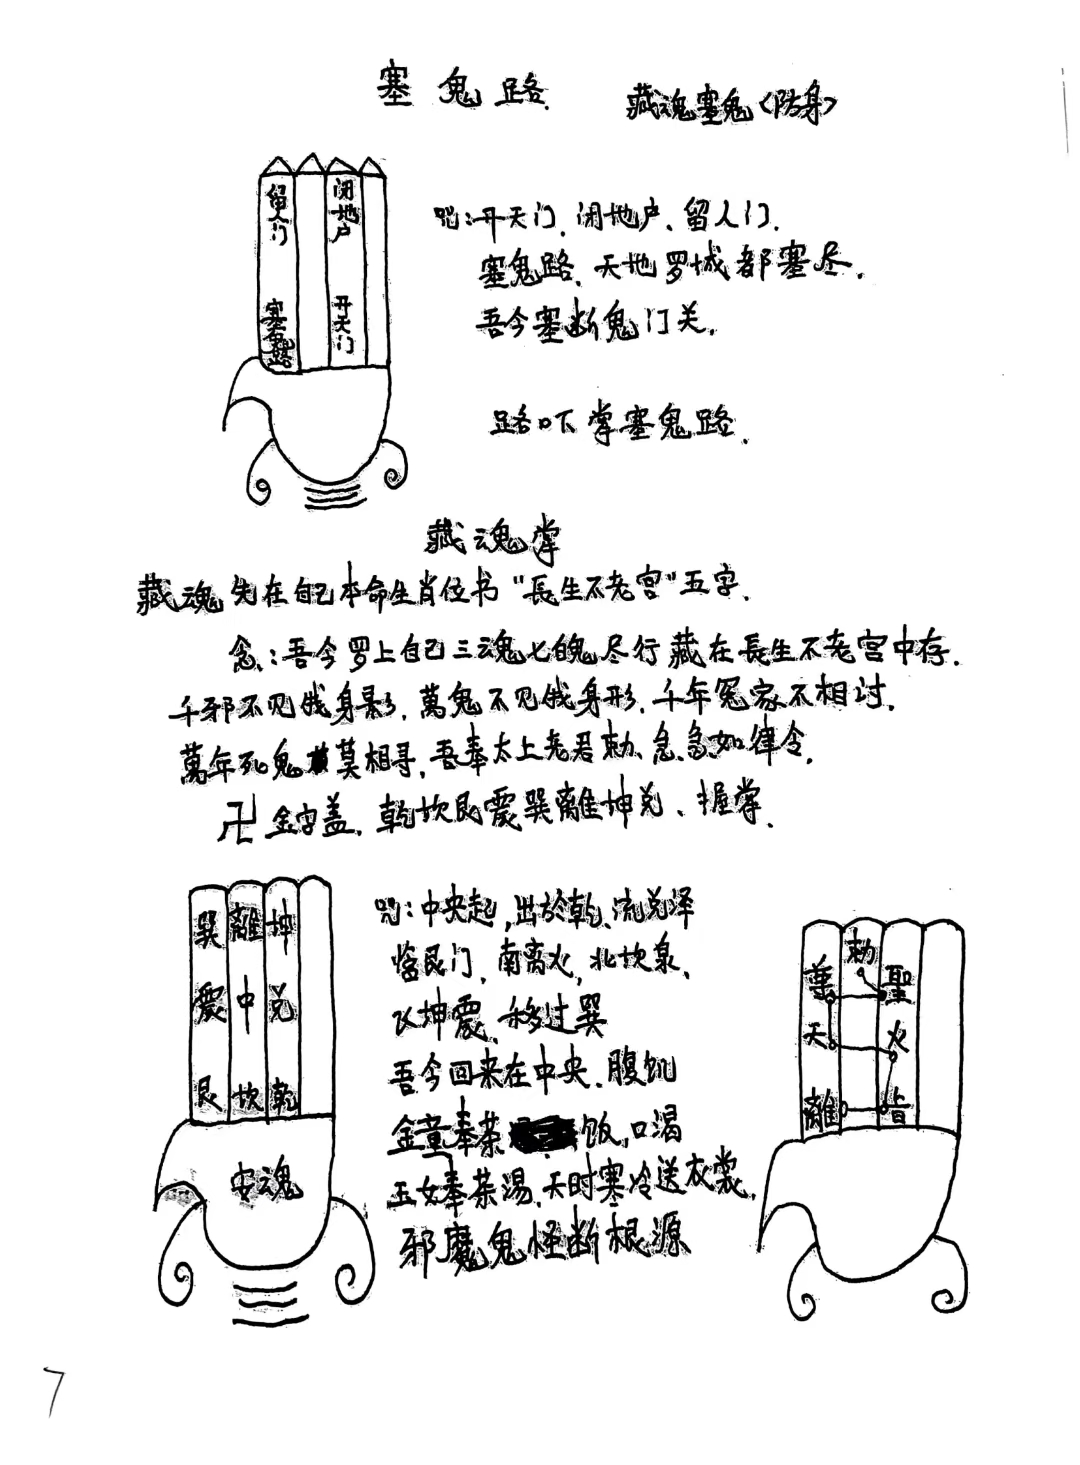 塞鬼路.
藏魂塞鬼〈防身〉
留人门
塞鬼路
闭地户
开天门
咒:开天门.闭地户、留人门.
塞鬼路.天地罗城都塞尽.
吾今塞断鬼门关.
路吓掌塞鬼路.
藏魂掌
藏魂先在自己本命生肖位书"長生不老宫"五字.
念:吾今罗上自己三魂七魄尽行藏在長生不老宫中存.
千邪不见俄身影.萬鬼不见俄身形.千年冤家不相讨.
萬年死鬼莫相寻.吾奉太上老君勅.急急如律令.
卍金字盖.乾坎艮震巽離坤兑、握掌.
巽 離 坤
震 中 兑
艮 坎 乾
安魂
咒:中央起,出於乾、流兑泽
临艮门.南离火,北坎泉.
以坤震.移过巽
吾今回来在中央.腹饥
金童奉茶饭,口渴
玉女奉茶湯.天时寒冷送衣裳.
邪魔鬼怪断根源
勅
聖
天 火
離
7